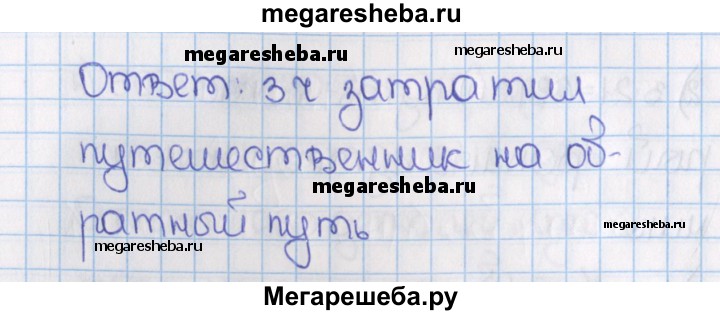 megaresheba.ru
megaresheba.ru
megaresheba.ru
Ответ: 3 ч затратил
путешественник на об-
megaresheba.ru
ратный путь
megaresheba.ru
Мегарешеба.ру